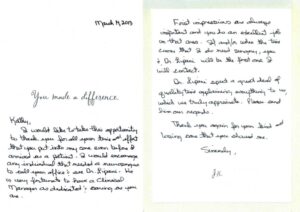 March 14, 2013
You made a difference.
Kathy,
I would like to take this opportunity
to thank you for all your time and effort
that you put into my care even before I
arrived as a patient. I would encourage
any individual that needed a neurosurgeon
to call your office & see Dr. Lipani. He
is very fortunate to have a Clinical
Manager as dedicated & caring as you
are.
First impressions are always
important and you do an excellent job
in that area. If and/or when the time
comes that I do need surgery, you
& Dr. Lipani will be the first one I
will contact.
Dr. Lipani spent a great deal of
quality time explaining everything to us
which we truly appreciate. Please send
him our regards.
Thank you again for your kind and
caring care that you showed me.
Sincerely,
J.K.